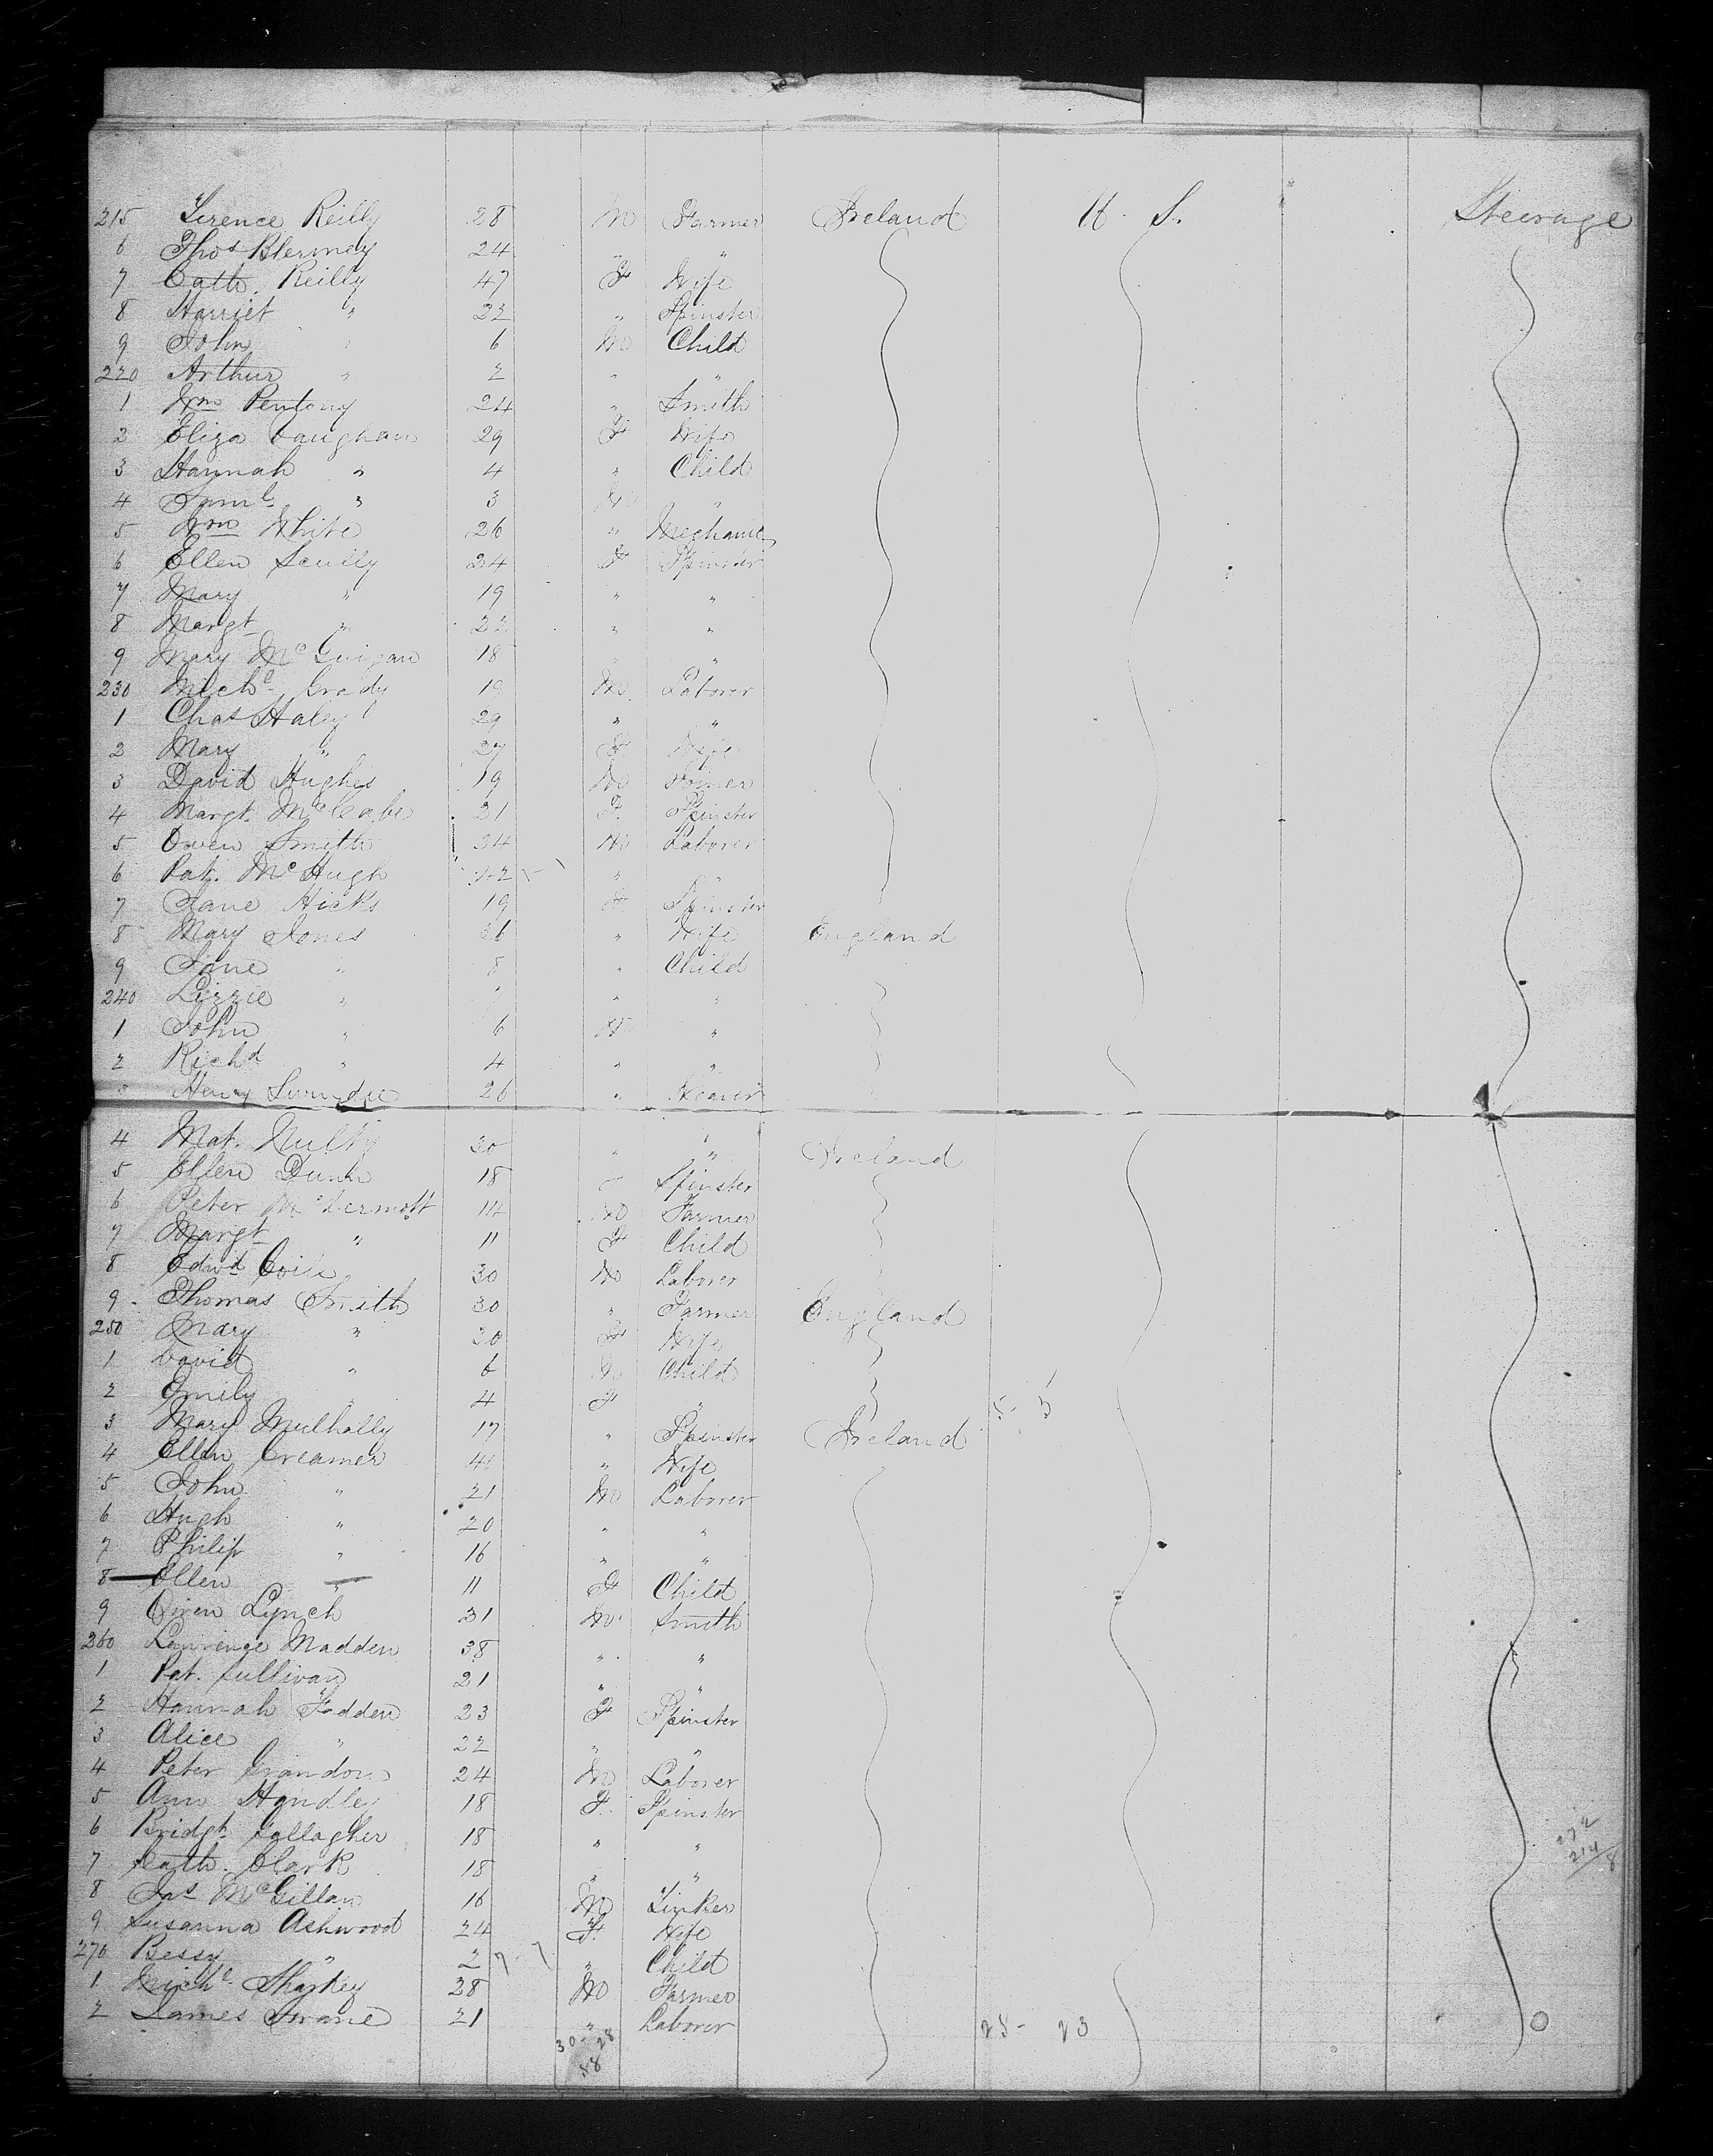 215 Terence Reilly 28 M Farmer Ireland U. S. Steerage
6 Thos 24 " "
7 Cath. Reilly 47 F Wife
8 Harriet " 22 " Spinster
9 John " 6 M Child
220 Arthur " 2 " "
1 Wm Pentony 24 " Smith
2 Eliza Vaughan 29 F Wife
3 Hannah " 4 " Child
4 Saml " 3 M "
5 Wm White 26 " Mechanic
6 Ellen Scully 24 F Spinster
7 Mary " 19 " "
8 Margt " 22 " "
9 Mary McGuigan 18 " "
230 Michl Grady 19 M Laborer
1 Chas Haley 29 " "
2 Mary " 27 F Wife
3 David Hughes 19 M Joiner
4 Margt McCabe 21 F. Spinster
5 Owen Smith 24 M Laborer
6 Pat. McHugh " "
7 Jane Hicks 19 F Spinster
8 Mary Jones 36 " Wife England
9 Jane " 8 " Child
240 Lizzie " " "
1 John " 6 M "
2 Richd " 4 " "
Henry 26 " Weaver
4 Mat. Nulty 30 " " Ireland
5 Ellen Dunn 18 Spinster
6 Peter McDermott 14 M Farmer
7 Margt " 11 F Child
8 Edwd 30 M Laborer
9 Thomas Smith 30 " Farmer England
250 Mary " 30 F Wife
1 David " 6 M Child
2 Emily " 4 F "
3 Mary Mulhally 17 " Spinster Ireland
4 Ellen Creamer 40 " Wife
5 John " 21 M Laborer
6 Hugh " 20 " "
7 Philip " 16 " "
8 Ellen " 11 F Child
9 Owen Lynch 31 M Smith
260 Lawrence Madden 38 " "
1 Pat. Sullivan 21 " "
2 Hannah Fadden 23 F Spinster
3 Alice " 22 " "
4 Peter 24 M Laborer
5 Ann Handley 18 F. Spinster
6 Bridgt Gallagher 18 " "
7 Cath. Clark 18 " "
8 Jas McGillan 16 M Tinker
9 Susanna Ashwood 24 F. Wife
270 Bessy " 2 " Child
1 Michl Sharkey 28 M Farmer
2 James Swane 21 " Laborer
30 - 28
58